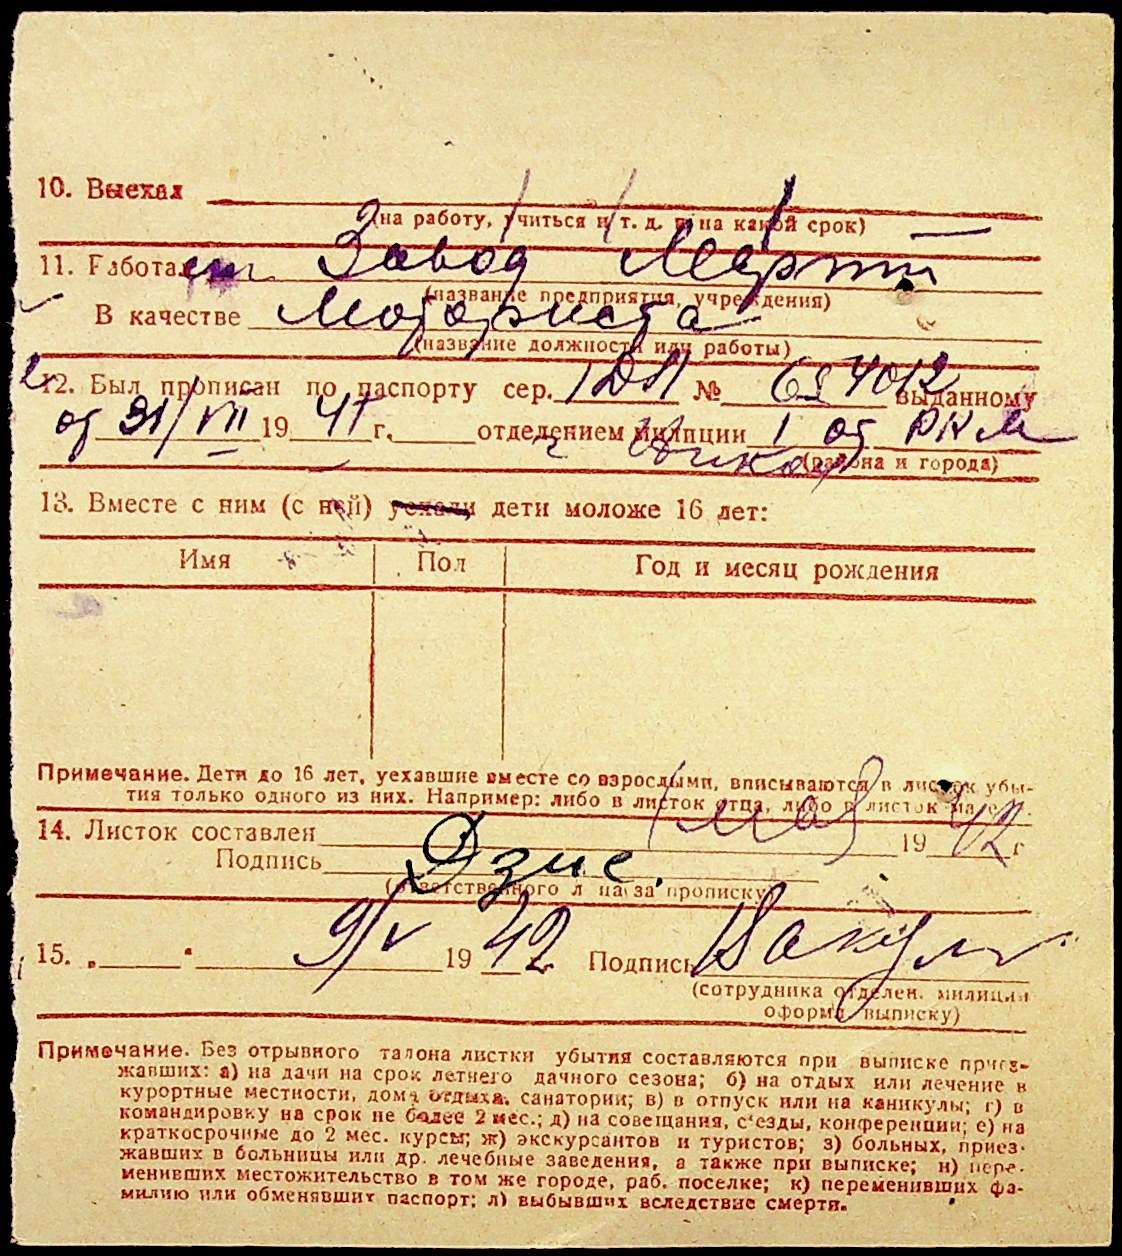 10. Выехал
(на работу, учиться и т. д. и на какой срок)
11. Работает Завод Марти
(название предприятия, учреждения)
В качестве Моториста
(название должности или работы)
12. Был прописан по паспорту сер. № выданному
от 31/VII 1941 г. отделением милиции 1 от РКМ
(района и города)
13. Вместе с ним (с ней) уехали дети моложе 16 лет:
Имя Пол Год и месяц рождения
Примечание. Дети до 16 лет, уехавшие вместе со взрослыми, вписываются в листок убы-
тия только одного из них. Например: либо в листок отца, либо в листок матери.
14. Листок составлен 1 мая 1942 г
Подпись
(ответственного лица за прописку)
15. „ " 9/V 1942 Подпись
(сотрудника отделен. милиции
оформ. выписку)
Примечание. Без отрывного талона листки убытия составляются при выписке приез-
жавших: а) на дачи на срок летнего дачного сезона; б) на отдых или лечение в
курортные местности, дома отдыха, санатории; в) в отпуск или на каникулы; г) в
командировку на срок не более 2 мес.; д) на совещания, с'езды, конференции; е) на
краткосрочные до 2 мес. курсы; ж) экскурсантов и туристов; з) больных, приез-
жавших в больницы или др. лечебные заведения, а также при выписке; и) пере-
менивших местожительство в том же городе, раб. поселке; к) переменивших фа-
милию или обменявших паспорт; л) выбывших вследствие смерти.